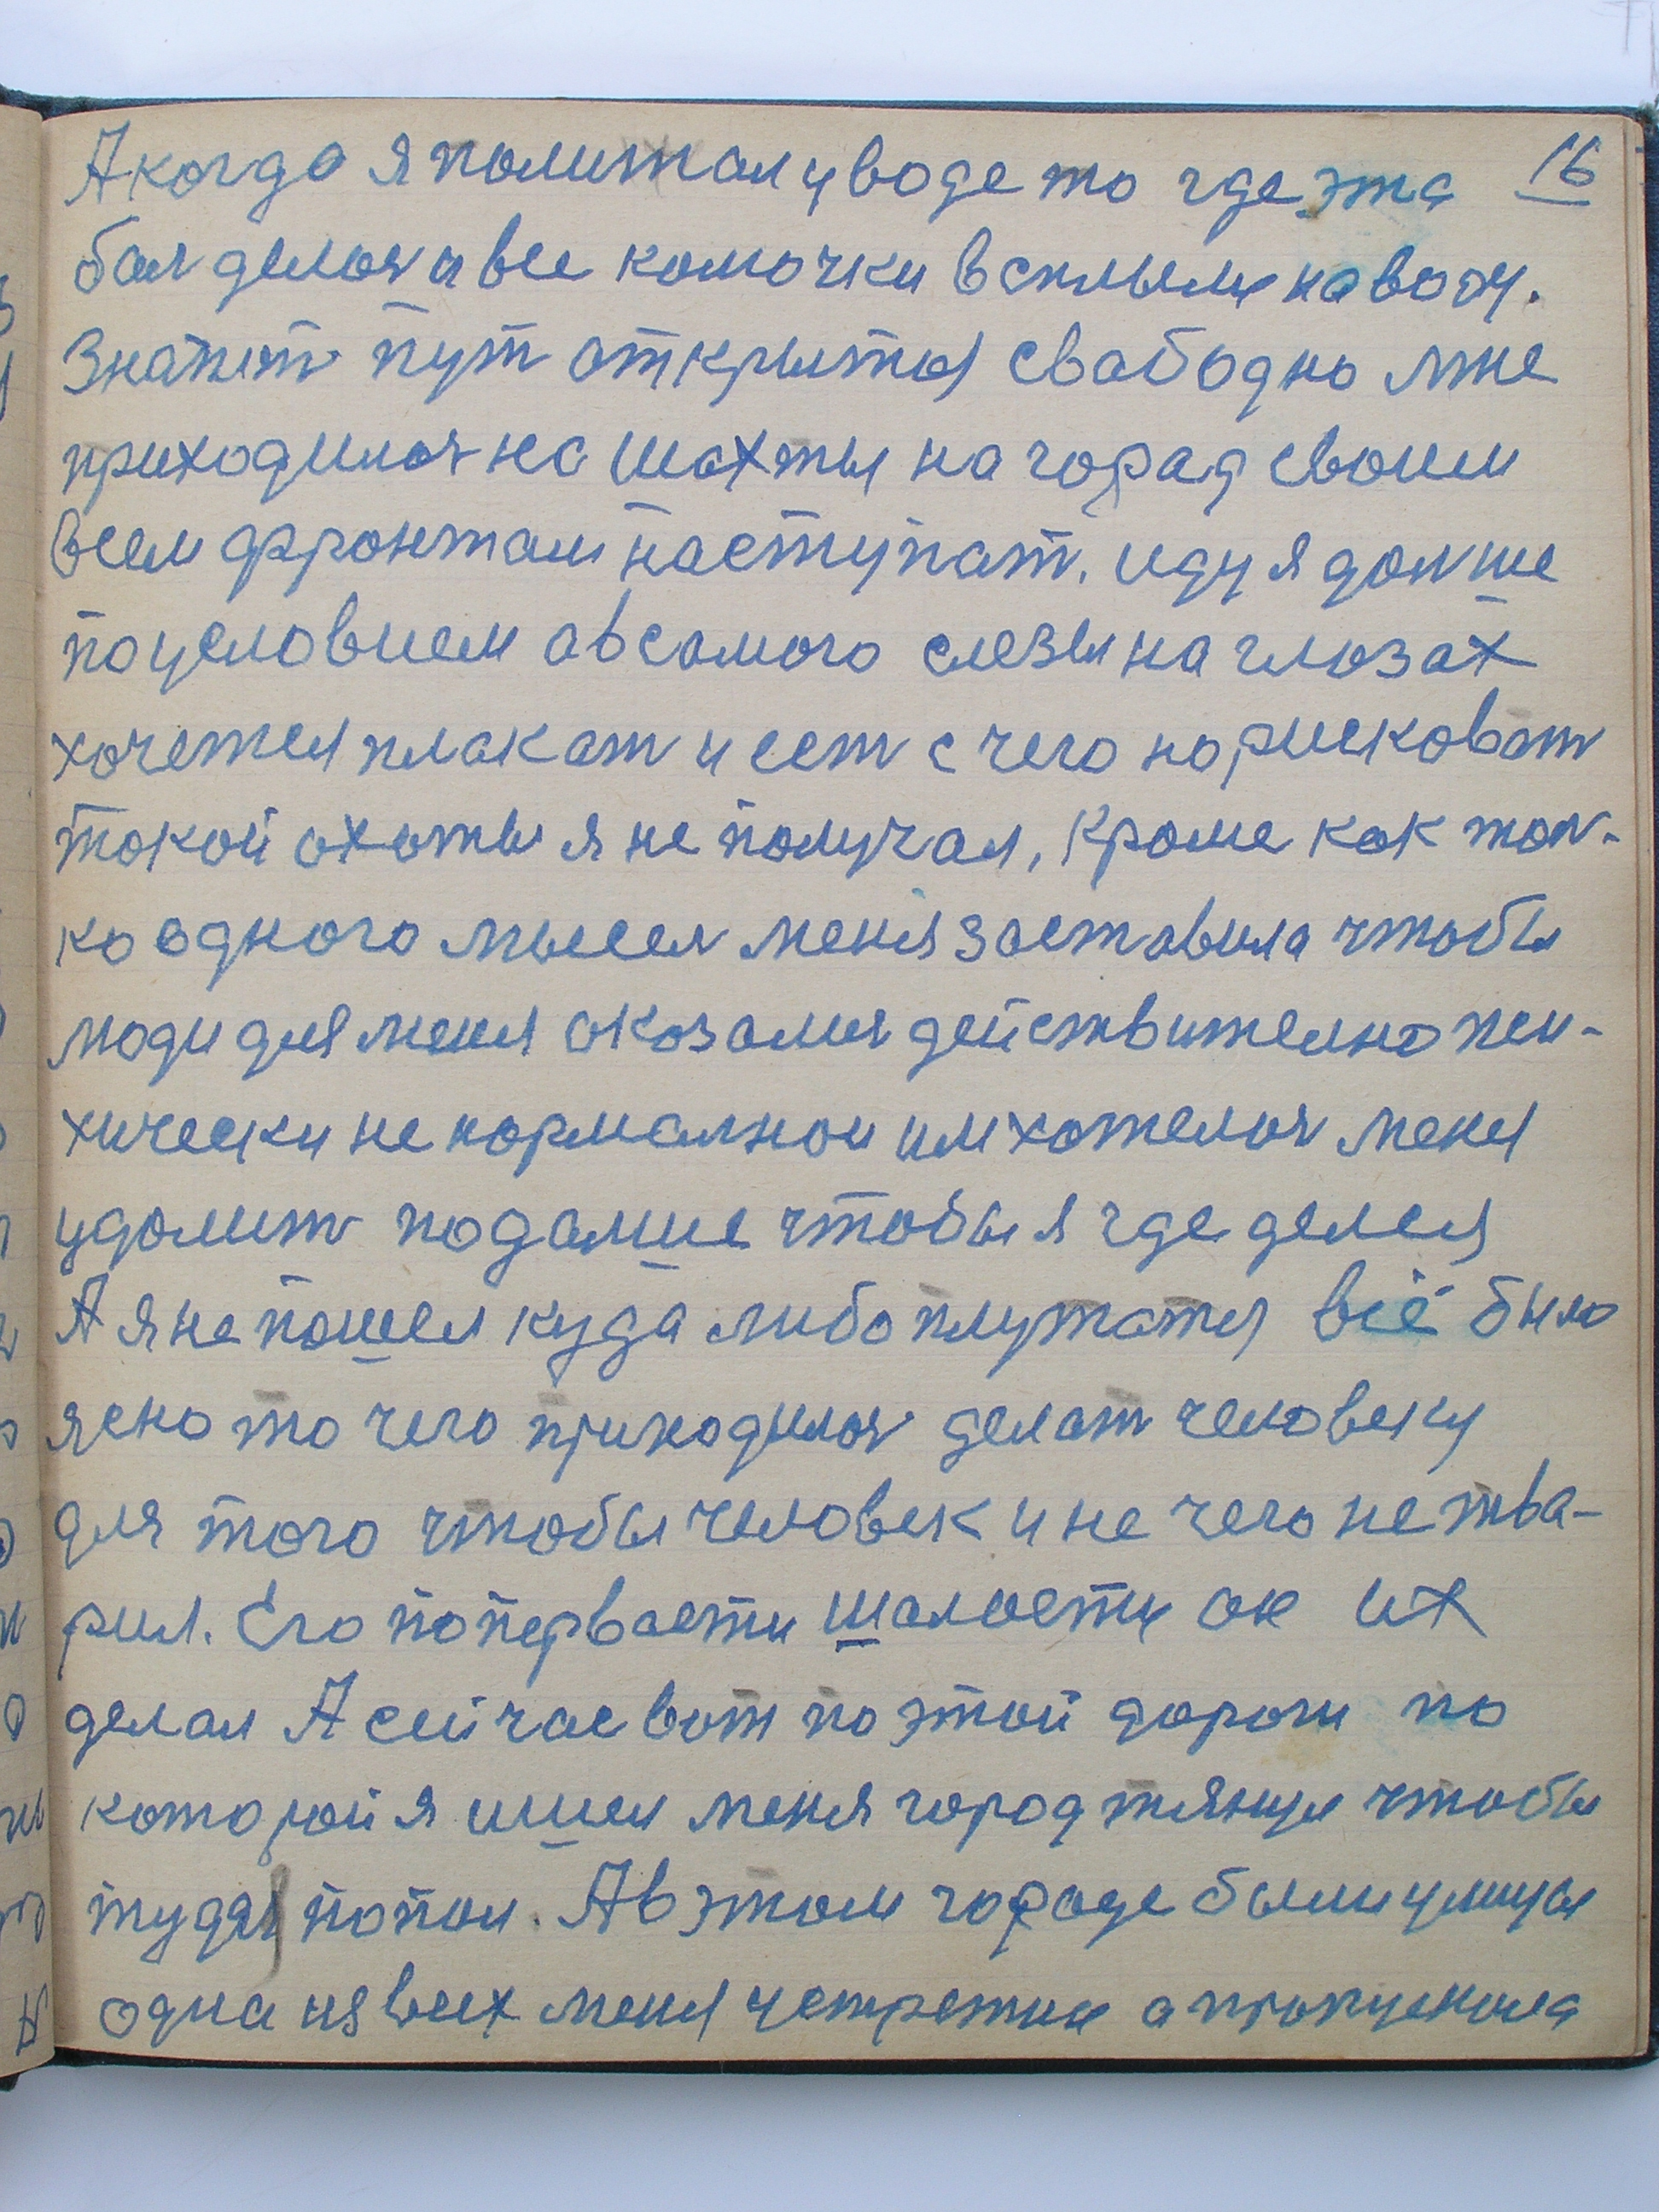 16
А когда я политал у воде то где эта
бал делась и все комочки всплыли на воду.
Значит пут аткрытыя свабодно мне
приходилось на шахты на горад своим
всем фронтам наступат. иду я дольше
по условием а в самого слезы на глазах
хочется плакат и ест с чего но рисковат
токой охоты я не получал, кроме как тол-
ко одного мысел меня заставила чтобы
люди для меня оказалися действително пси-
хически не нормалнои им хотелось меня
удолит подалше чтобы я где делся
А я не пошел куда либо плутатся всё было
ясно то чего приходилось делат человеку
для того чтобы человек и не чего не тва-
рил. Его по первасти шалости он их
делал А сейчас вот по этой дороги по
которой я ишел меня город тянул чтобы
туда попал. А в этом городе были улицы
одна из всех меня устретил а пропускала